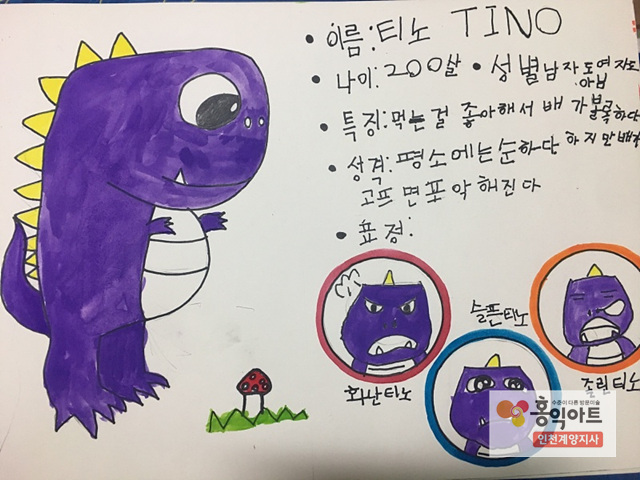 • 이름:티노 TINO
• 나이:200살 • 성별남자도여자도
아님
• 특징:먹는걸 좋아해서 배가볼록하단
• 성격:평소에는순하단 하지만배가
고프면포악해진다
• 표정:
슬픈티노
화난티노
졸린티노
수준이 다른 방문미술
홍익아트
인천계양지사